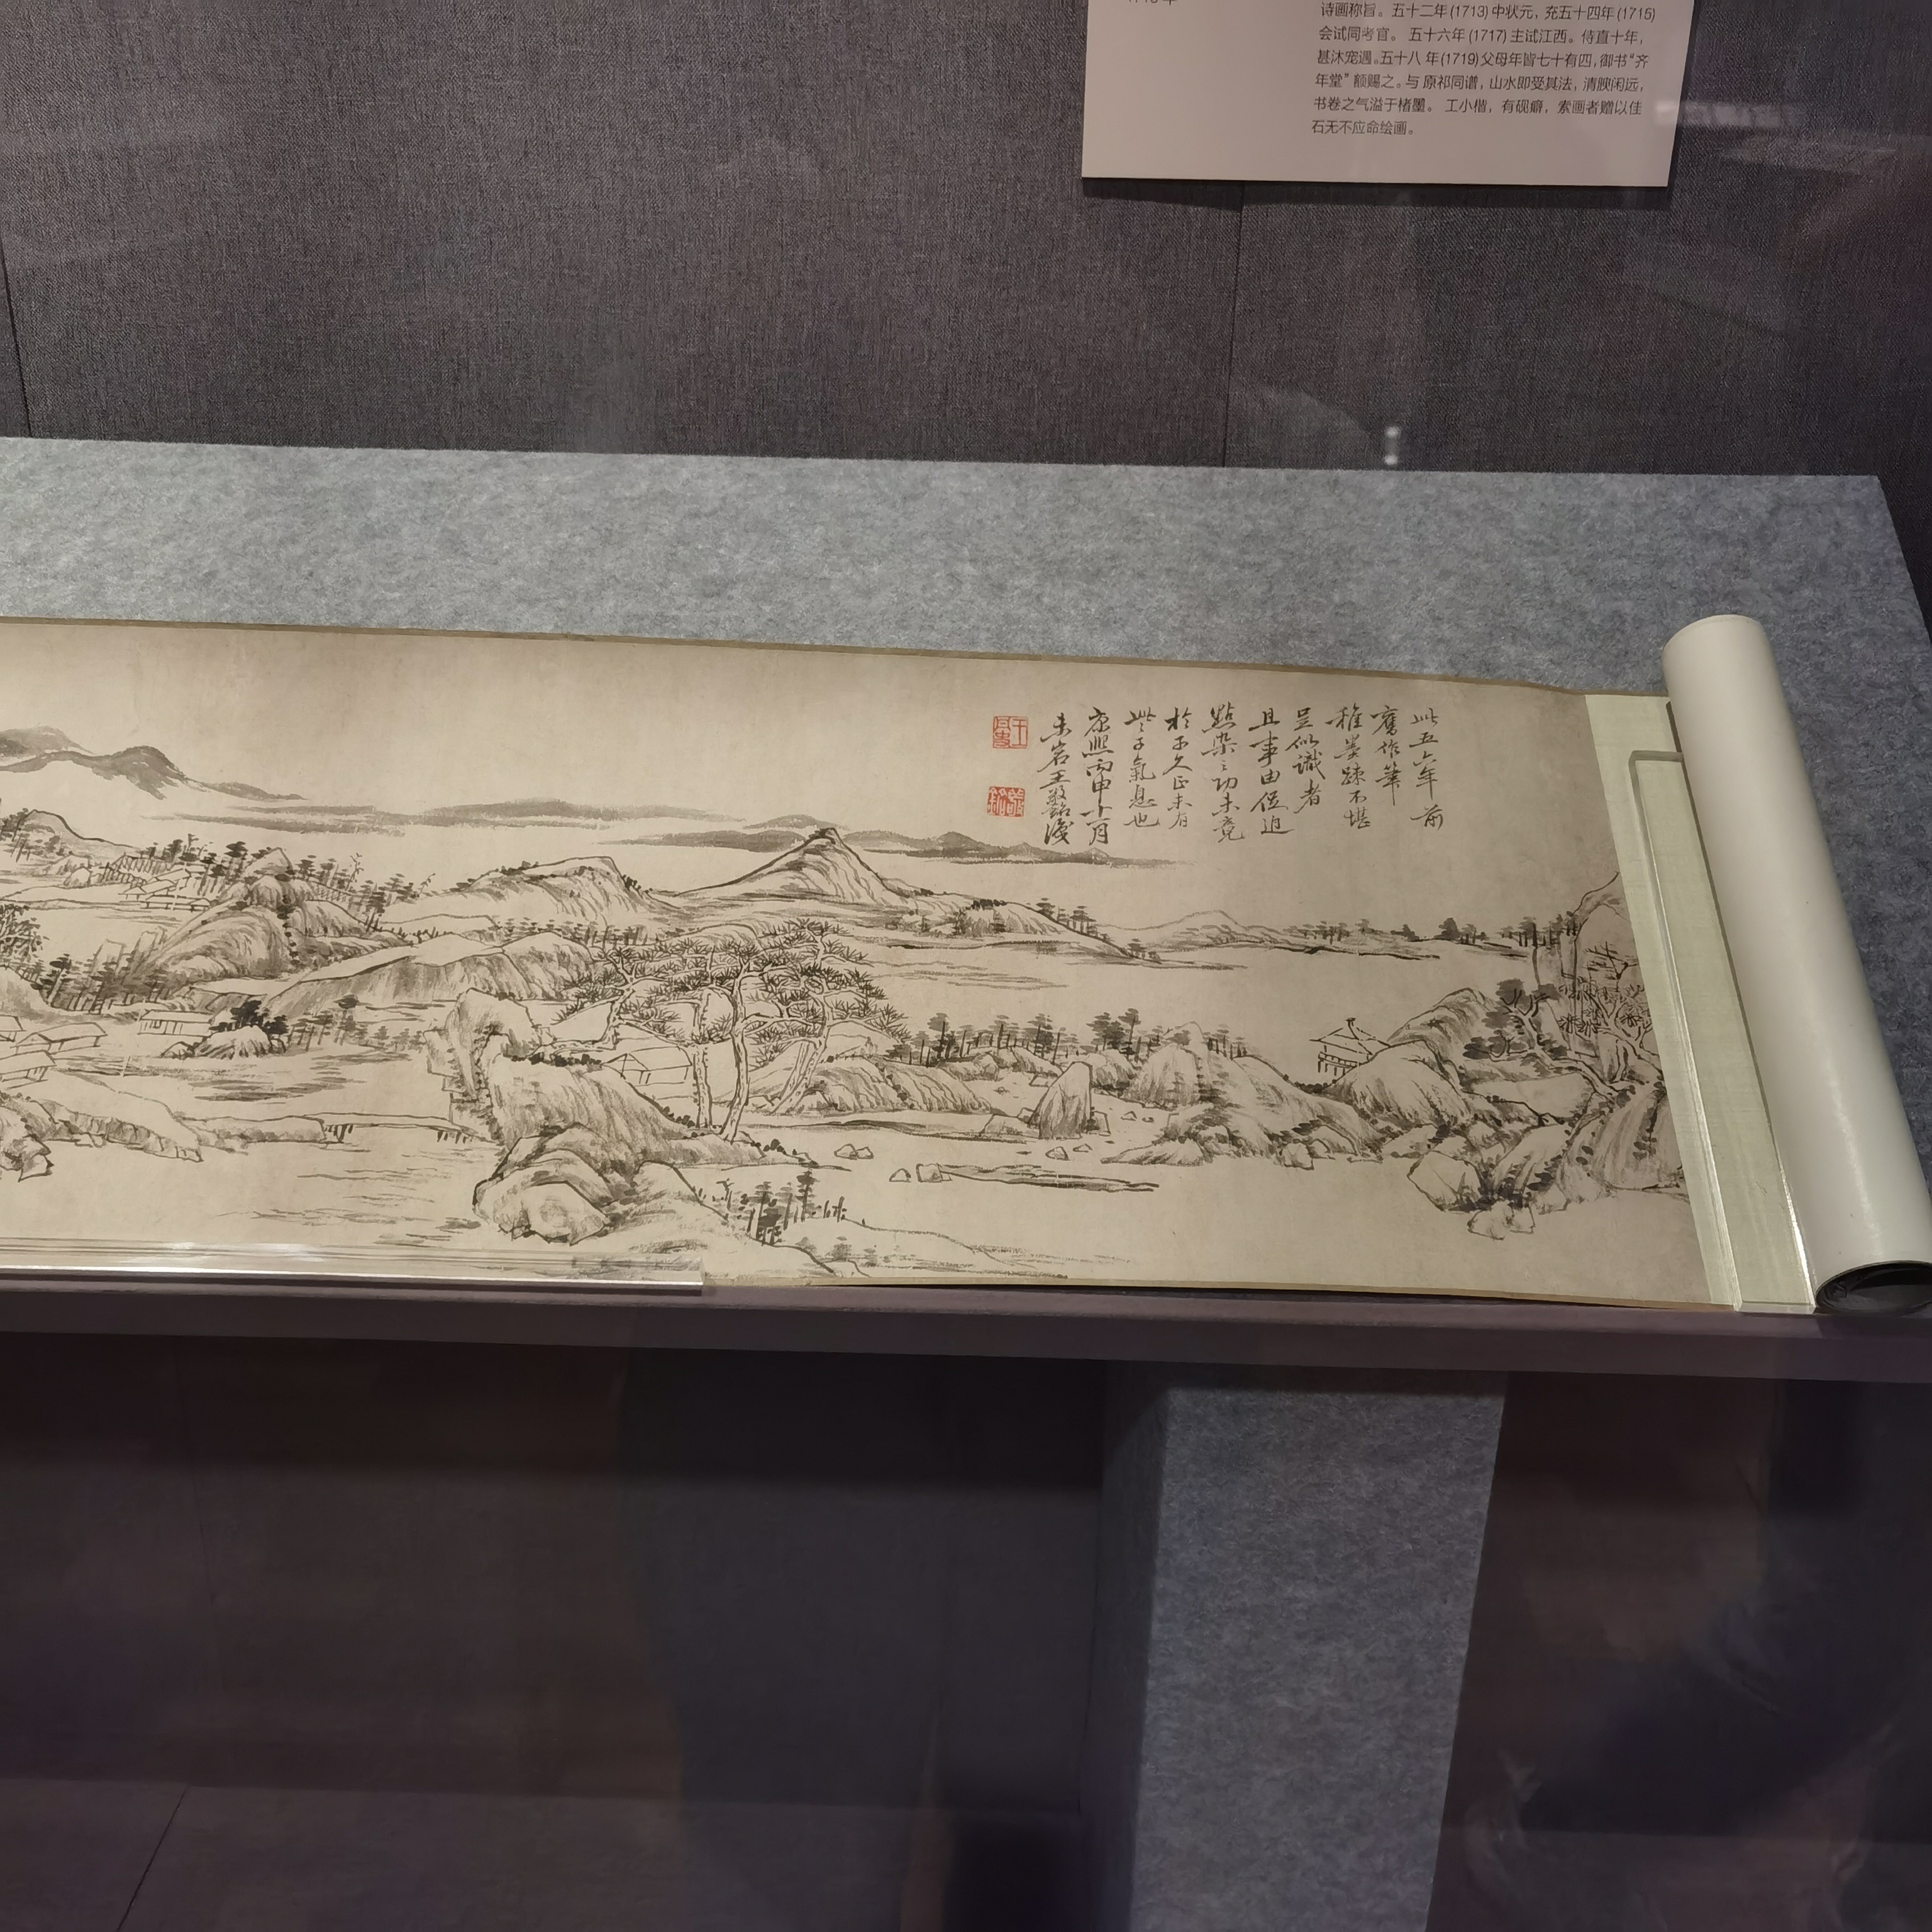 诗画称旨。五十二年(1713)中状元，充五十四年(1715)
会试同考官。 五十六年(1717)主试江西。侍直十年，
甚沐宠遇。五十八 年(1719)父母年皆七十有四，御书“齐
年堂”额赐之。与 原祁同谱，山水即受其法，清腴闲远，
书卷之气溢于楮墨。 工小楷，有砚癖，索画者赠以佳
石无不应命绘画。
此五六年前
舊作筆
稚墨踈不堪
呈似識者
且事由促迫
點染之功未竟
於子久正未有
些子氣息也
康熙丙申十月
未岩王敬銘識